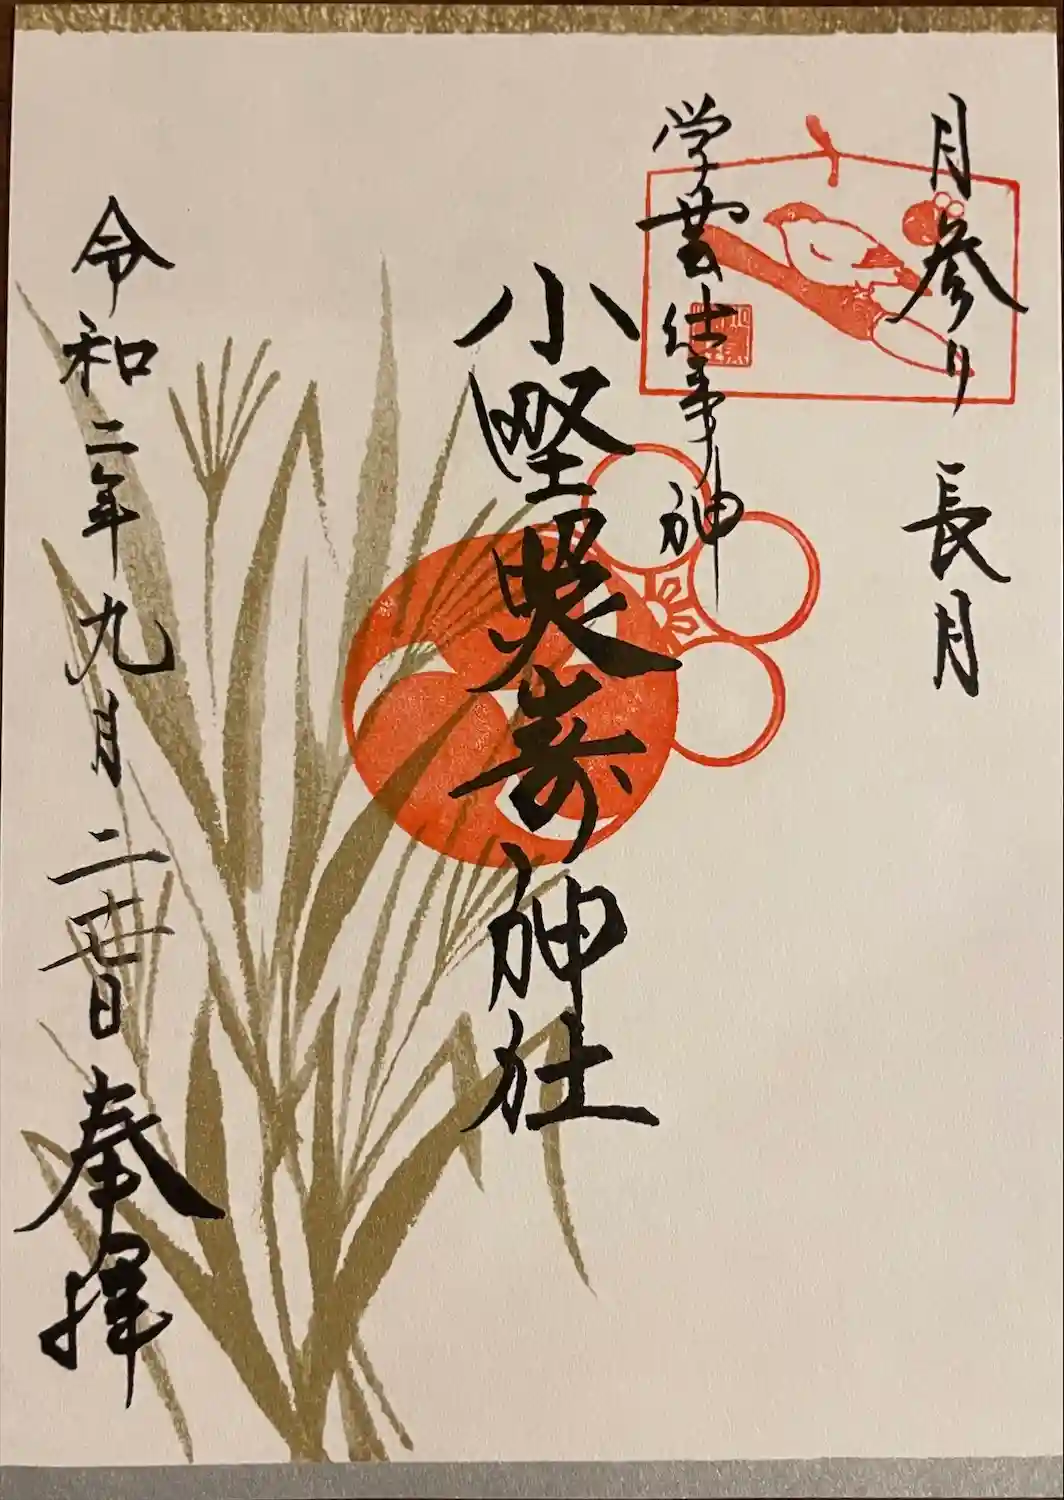 月参り 長月
学芸仕事神
小野照崎神社
令和二年九月二十七日 奉拝